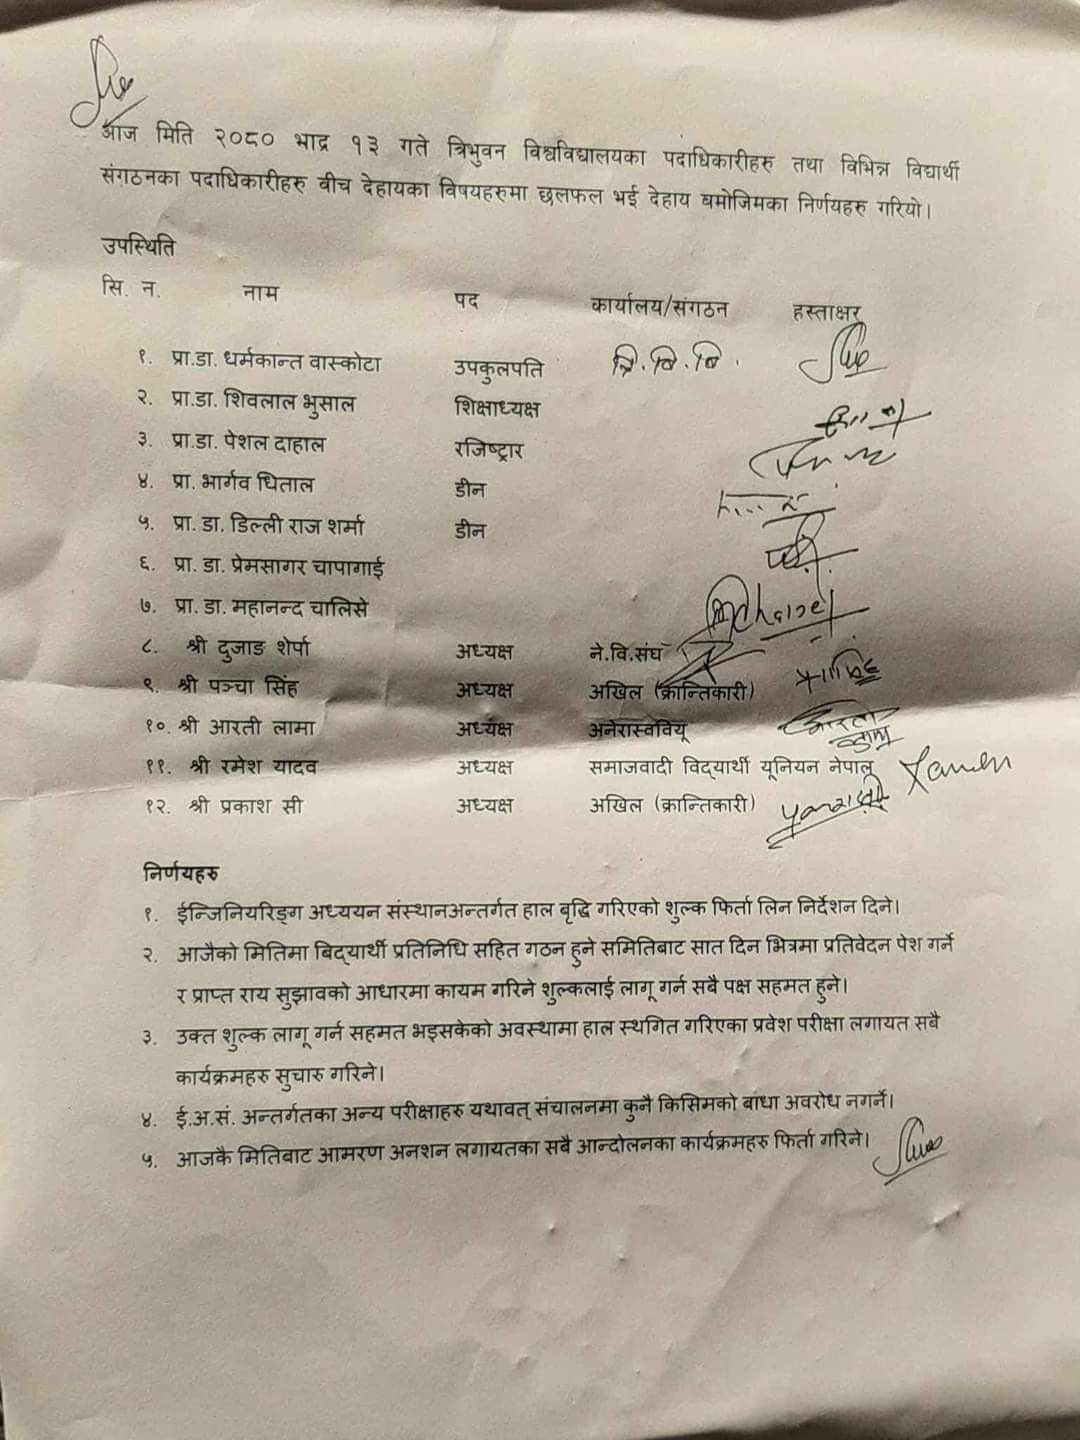 आज मिति २०८० भाद्र १३ गते त्रिभुवन विश्वविद्यालयका पदाधिकारीहरु तथा विभिन्न विद्यार्थी
संगठनका पदाधिकारीहरु बीच देहायका विषयहरुमा छलफल भई देहाय बमोजिमका निर्णयहरु गरियो।
उपस्थिति
सि. न. नाम पद कार्यालय/संगठन हस्ताक्षर
१. प्रा.डा. धर्मकान्त वास्कोटा उपकुलपति त्रि.वि.वि.
२. प्रा.डा. शिवलाल भुसाल शिक्षाध्यक्ष
३. प्रा.डा. पेशल दाहाल रजिष्ट्रार
४. प्रा. भार्गव धिताल डीन
५. प्रा. डा. डिल्ली राज शर्मा डीन
६. प्रा. डा. प्रेमसागर चापागाई
७. प्रा. डा. महानन्द चालिसे
८. श्री दुजाङ शेर्पा अध्यक्ष ने.वि.संघ
९. श्री पञ्चा सिंह अध्यक्ष अखिल (क्रान्तिकारी)
१०. श्री आरती लामा अध्यक्ष अनेरास्ववियू आरती लामा
११. श्री रमेश यादव अध्यक्ष समाजवादी विद्यार्थी यूनियन नेपाल
१२. श्री प्रकाश सी अध्यक्ष अखिल (क्रान्तिकारी)
निर्णयहरु
१. ईन्जिनियरिङ्ग अध्ययन संस्थानअन्तर्गत हाल बृद्धि गरिएको शुल्क फिर्ता लिन निर्देशन दिने।
२. आजैको मितिमा बिद्यार्थी प्रतिनिधि सहित गठन हुने समितिबाट सात दिन भित्रमा प्रतिवेदन पेश गर्ने
र प्राप्त राय सुझावको आधारमा कायम गरिने शुल्कलाई लागू गर्न सबै पक्ष सहमत हुने।
३. उक्त शुल्क लागू गर्न सहमत भइसकेको अवस्थामा हाल स्थगित गरिएका प्रवेश परीक्षा लगायत सबै
कार्यक्रमहरु सुचारु गरिने।
४. ई.अ.सं. अन्तर्गतका अन्य परीक्षाहरु यथावत् संचालनमा कुनै किसिमको बाधा अवरोध नगर्ने।
५. आजकै मितिबाट आमरण अनशन लगायतका सबै आन्दोलनका कार्यक्रमहरु फिर्ता गरिने।